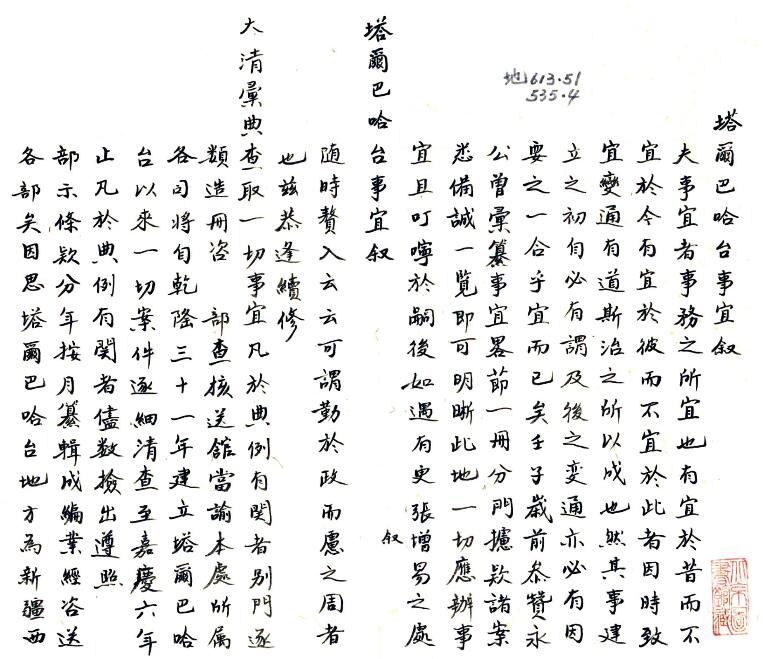 塔爾巴哈台事宜叙
夫事宜者事務之所宜也有宜於昔而不
宜於今有宜於彼而不宜於此者因時致
宜變通有道斯治之所以成也然其事建
立之初自必有謂及後之变通亦必有因
要之一合乎宜而已矣壬子歲前叅贊永
公曾彙纂事宜畧節一冊分門據欵諸案
悉備誠一覽即可明晰此地一切應辦事
宜且叮嚀於嗣後如遇有更張增易之處
塔爾巴哈台事宜叙
叙
随時贅入云云可謂勤於政而慮之周者
也兹恭逢續修
大清彙典查取一切事宜凡於典例有関者别門逐
類造冊咨 部查核送舘當諭本處所属
各司將自乾隆三十一年建立塔爾巴哈
台以來一切案件逐細清查至嘉慶六年
止凡於典例有関者儘数撿出遵照
部示條欵分年按月纂輯成編業經咨送
各部矣因思塔爾巴哈台地方為新疆西
地613·51
535·4